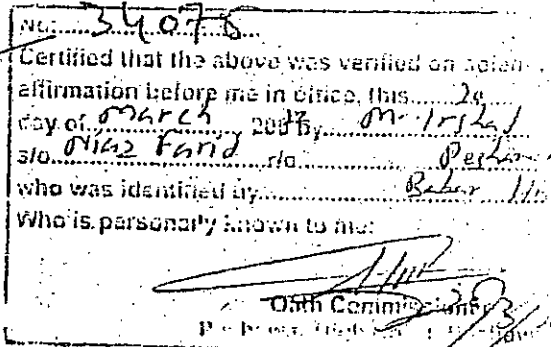 No: 34076
Certified that the above was verified on solem
affirmation before me in office, this 20
day of March 20 by Mr Irshad
s/o Niaz Farid r/o Pesha
who was identified by
Who is personally known to me:
Oath Commissioner